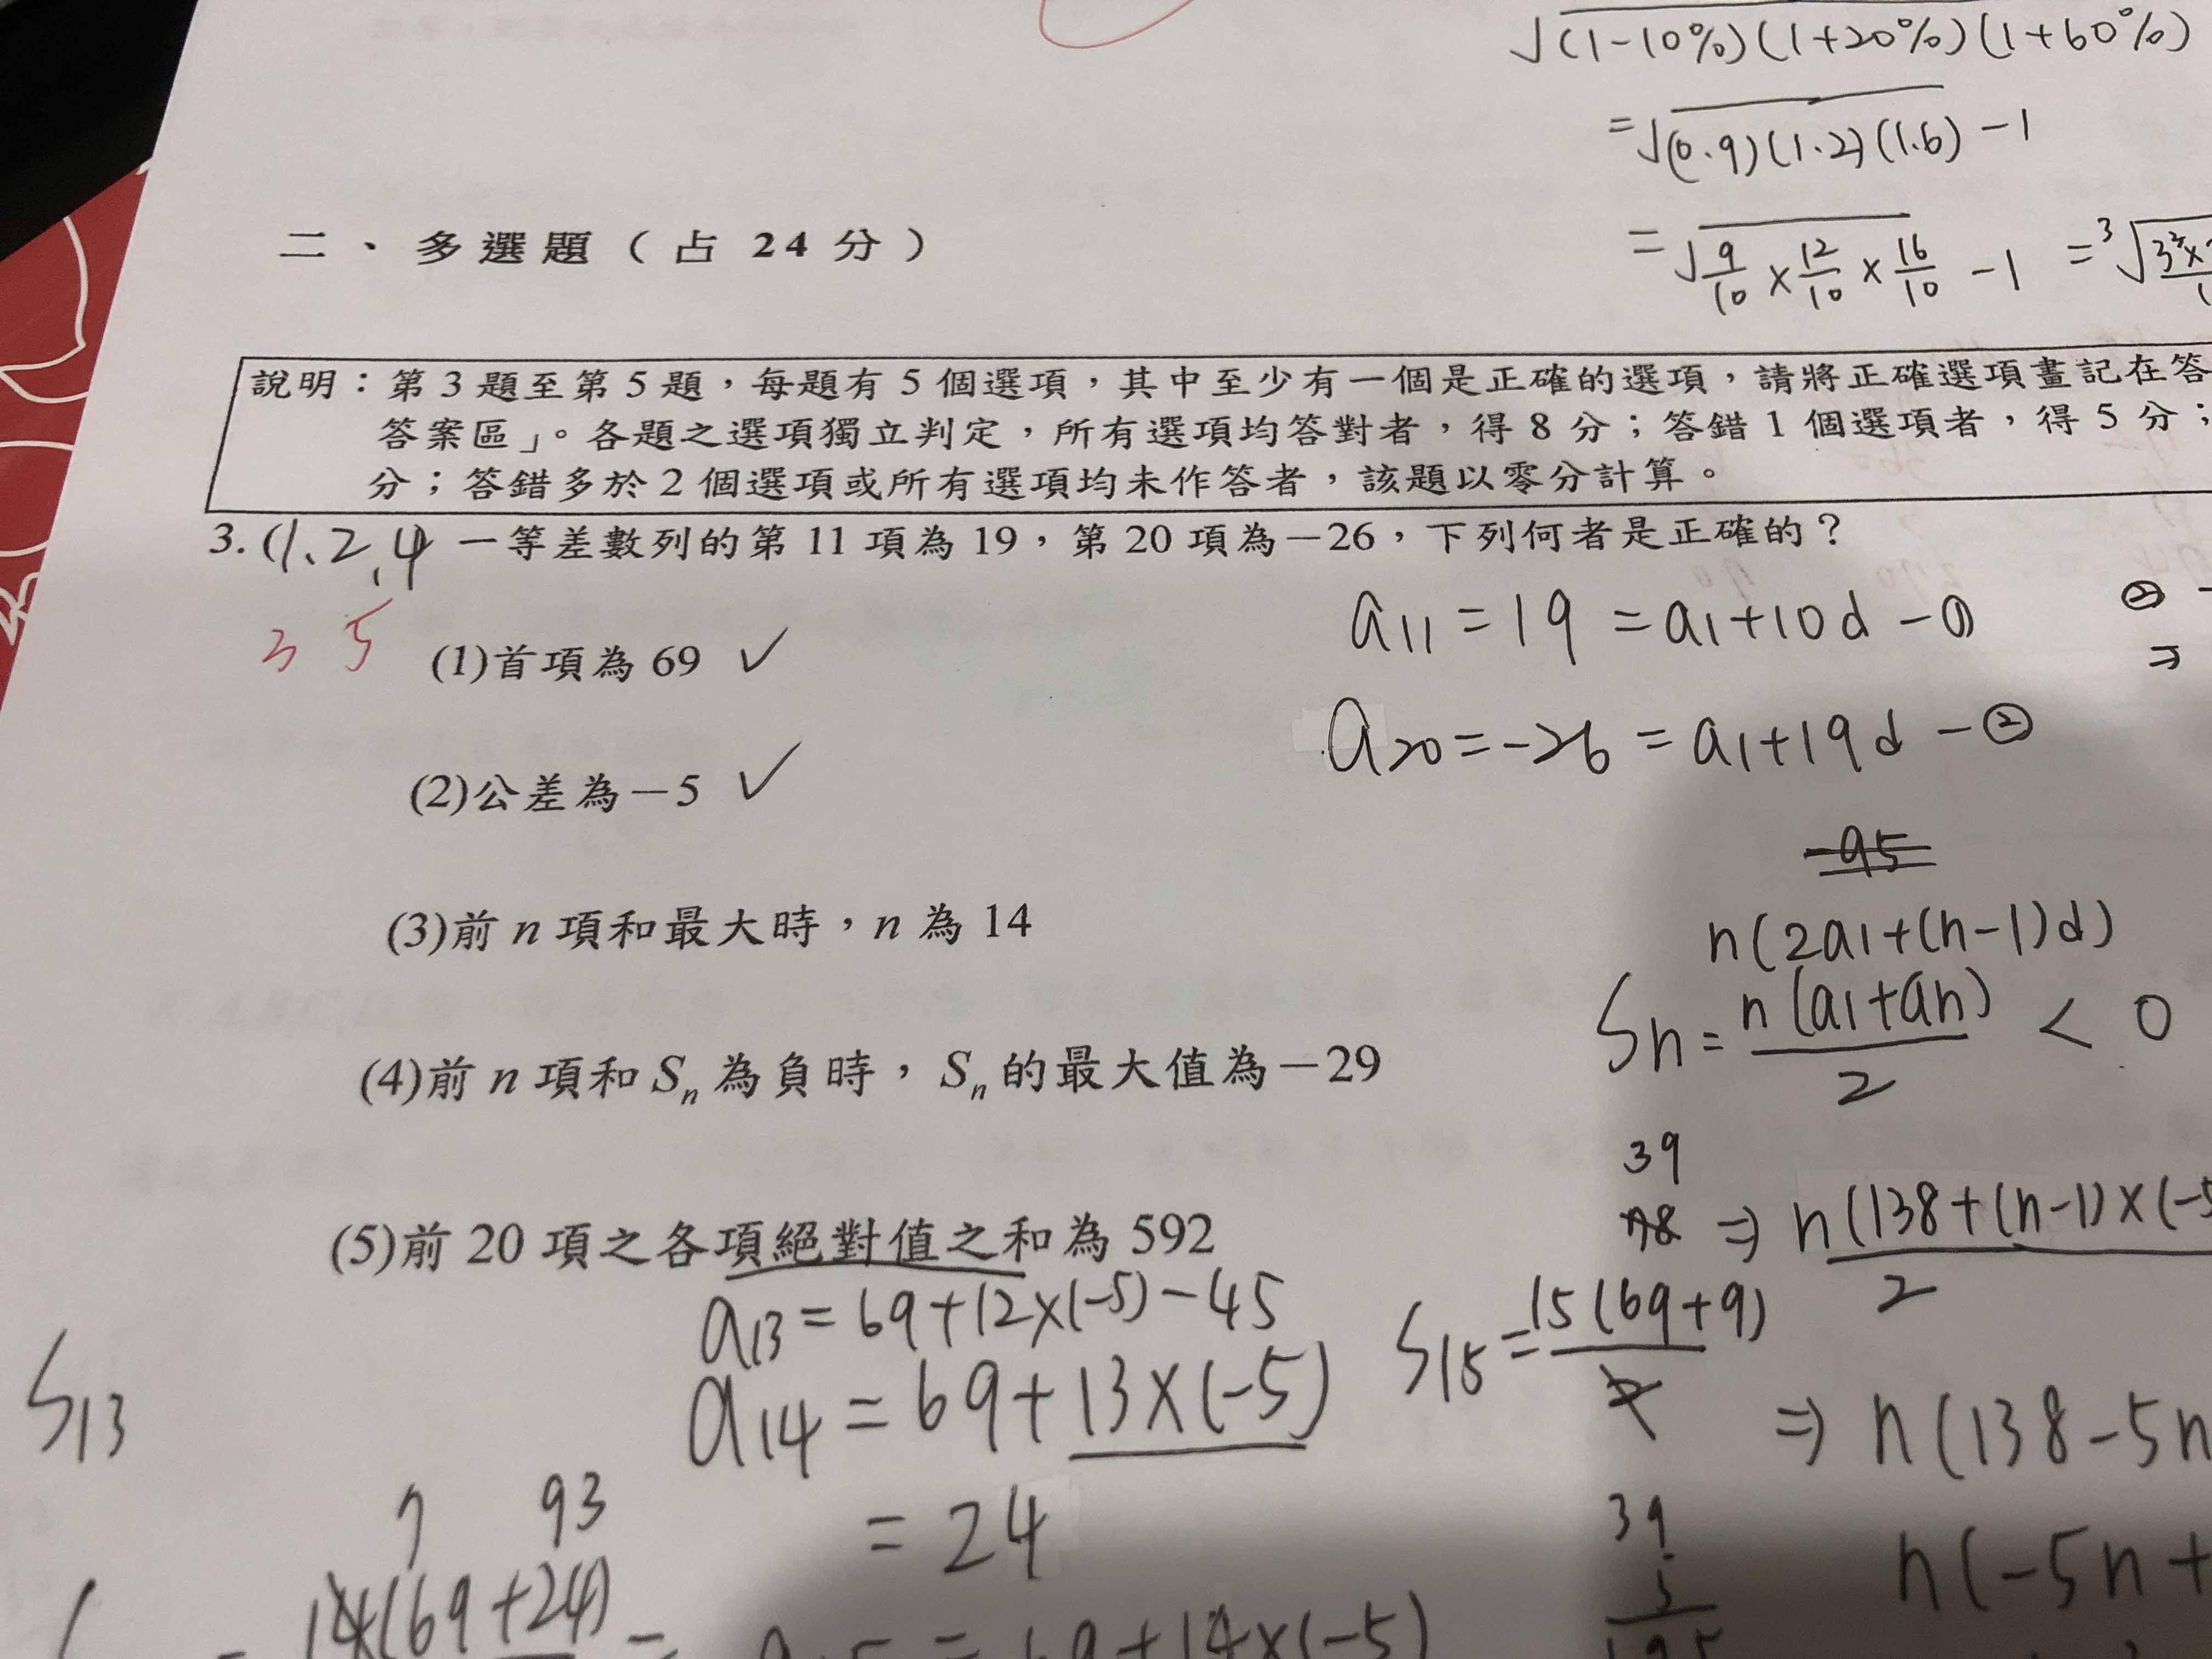 √(1-10%)(1+20%)(1+60%)
=√(0.9)(1.2)(1.6) -1
=√9/10×12/10×16/10 -1 =³√3²×
二、多選題（占 24 分）
說明：第 3 題至第 5 題，每題有 5 個選項，其中至少有一個是正確的選項，請將正確選項畫記在答
答案區」。各題之選項獨立判定，所有選項均答對者，得 8 分；答錯 1 個選項者，得 5 分；
分；答錯多於 2 個選項或所有選項均未作答者，該題以零分計算。
3. (1、2、4 一等差數列的第 11 項為 19，第 20 項為－26，下列何者是正確的？
3 5
a11 = 19 = a1+10d -①
②-
⇒
(1)首項為 69 ✓
a20=-26 = a1+19d -②
(2)公差為－5 ✓
-95
(3)前 n 項和最大時，n 為 14
n(2a1+(n-1)d)
Sn = n(a1+an)/2 < 0
(4)前 n 項和 Sn 為負時，Sn 的最大值為－29
39
78 ⇒ n(138+(n-1)×(-5/2
(5)前 20 項之各項絕對值之和為 592
a13 = 69+12×(-5)-45
S15 = 15(69+9)/2
S13
a14 = 69+13×(-5)
⇒ n(138-5n
= 24
7 93
14(69+24)
=
39
5
195
n(-5n+
= 69+14×(-5)